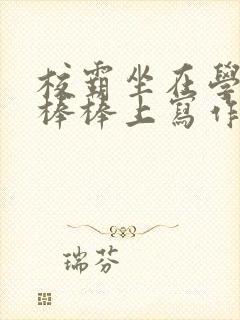 校霸坐在學
棒棒上寫作
瑞芬